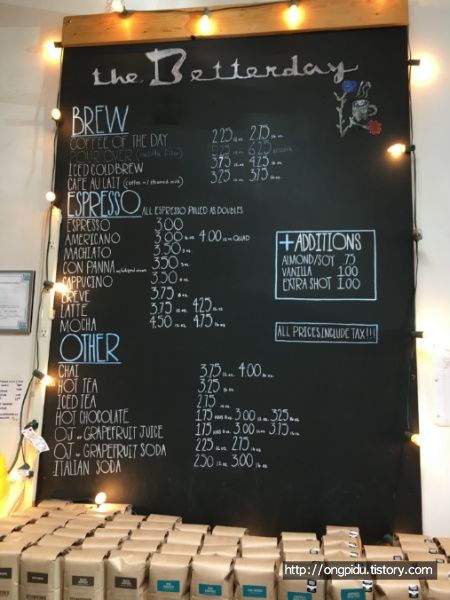 the Betterday
BREW
COFFEE OF THE DAY 2.25 12 oz. 2.75 16 oz.
POUR OVER 6.25
ICED COLD BREW 3.75 12 oz. 4.25 16 oz.
CAFE AU LAIT (coffee w/ steamed milk) 3.25 12 oz. 3.75 16 oz.
ESPRESSO ALL ESPRESSO PULLED AS DOUBLES
ESPRESSO 3.00
AMERICANO 3.00 4.00 QUAD
MACHIATO 3.50
CON PANNA 3.50
CAPPUCINO 3.50
BREVE 3.75
LATTE 3.75 12 oz. 4.25 16 oz.
MOCHA 4.50 12 oz. 4.75 16 oz.
+ ADDITIONS
ALMOND/SOY .75
VANILLA 1.00
EXTRA SHOT 1.00
ALL PRICES INCLUDE TAX!!!
OTHER
CHAI 3.75 12 oz. 4.00 16 oz.
HOT TEA 3.25
ICED TEA 2.75
HOT CHOCOLATE 1.75 3.00 12 oz. 3.25 16 oz.
OJ or GRAPEFRUIT JUICE 1.75 3.00 12 oz. 3.75 16 oz.
OJ or GRAPEFRUIT SODA 2.25 12 oz. 2.75 16 oz.
ITALIAN SODA 2.50 12 oz. 3.00 16 oz.
http://ongpidu.tistory.com